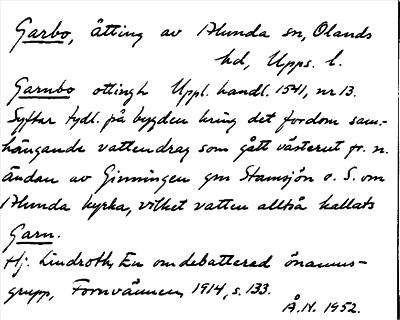 Garbo, åtting av Alunda sn, Olands
hd, Upps. l.
Garnbo ottingh Uppl. handl. 1541, nr 13.
Syftar tydl. på bygden kring det fordom sam-
hängande vattendrag som gått västerut fr. n.
ändan av Ginningen gm Stamsjön o. S. om
Alunda kyrka, vilket vatten alltså kallats
Garn.
Hj. Lindroth, En omdebatterad önamns-
grupp, Fornvännen 1914, s. 133.
Å.N. 1952.